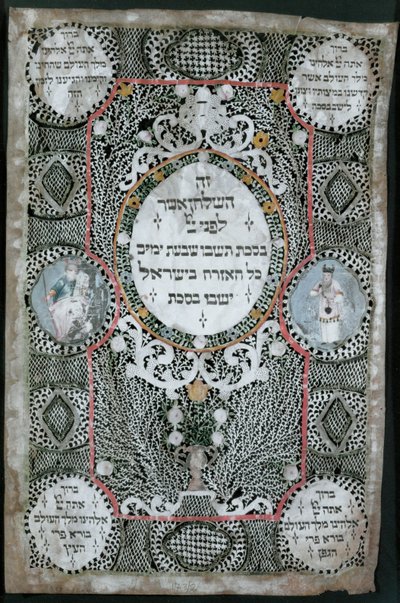 ברוך
אתה יי אלהינו
מלך העולם אשר
קדשנו במצותיו וצונו
לישב בסכה
ברוך
אתה יי אלהינו
מלך העולם שהחינו
וקימנו והגיענו לזמן
הזה
זה
השלחן אשר
לפני יי
בסכת תשבו שבעת ימים
כל האזרח בישראל
ישבו בסכת
ברוך
אתה יי
אלהינו מלך העולם
בורא פרי
הגפן
ברוך
אתה יי
אלהינו מלך העולם
בורא פרי
העץ